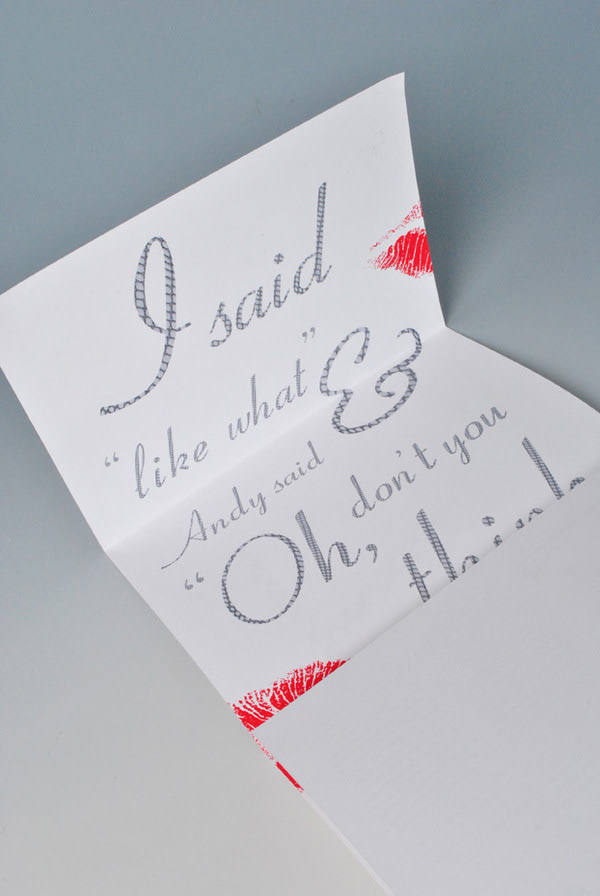 I said
“like what” &
Andy said
“Oh, don't you
think